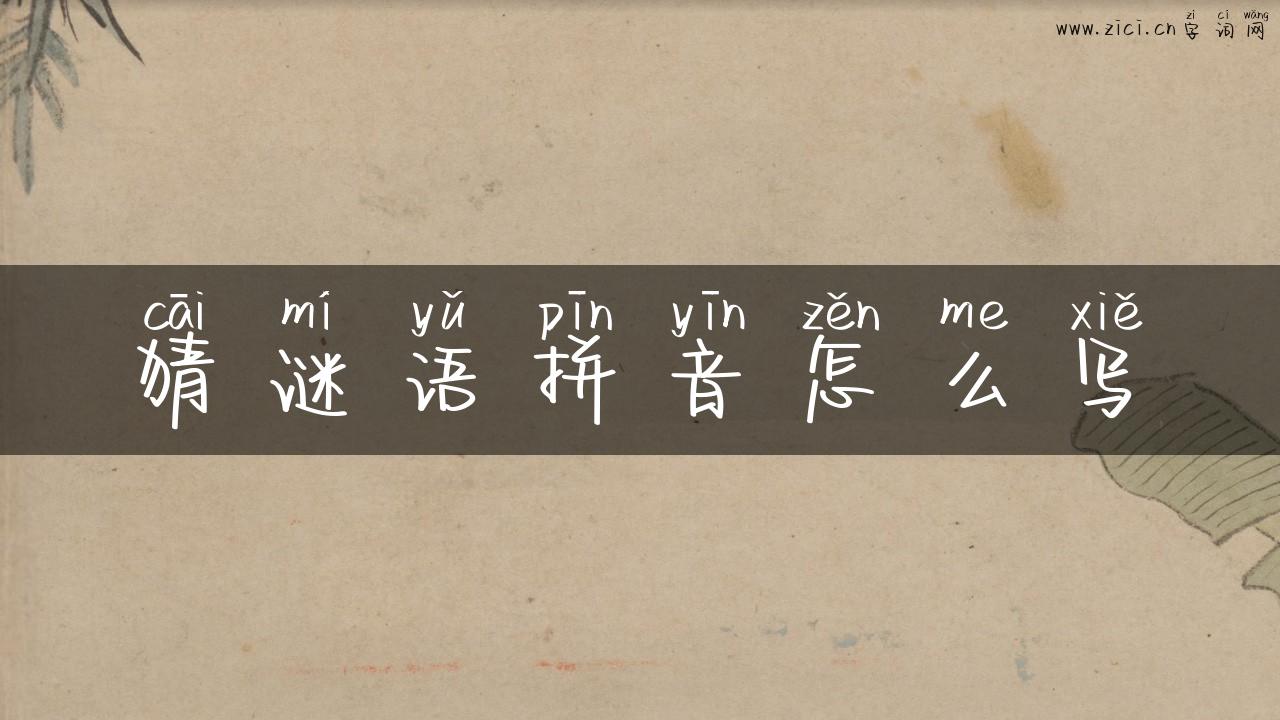 zì cí wǎng
www.zici.cn 字 词 网
cāi mí yǔ pīn yīn zěn me xiě
猜 谜 语 拼 音 怎 么 写